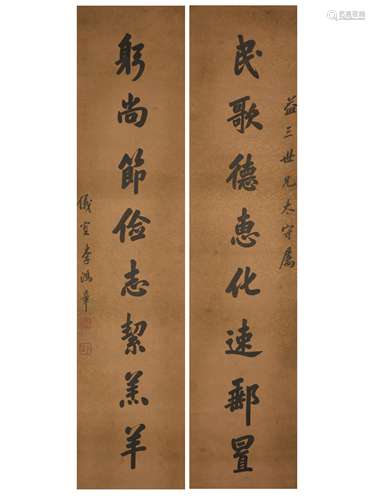 益三世兄太守属
民歌德惠化速郵置
躬尚節儉志潔羔羊
儀叟李鴻章